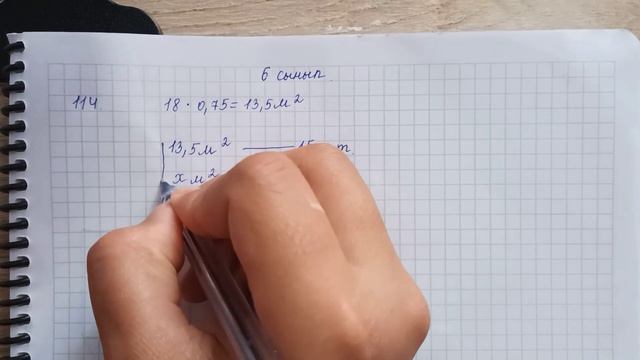 6 сынып.
114 18 · 0,75 = 13,5 м²
13,5 м² — 15 т.
х м²